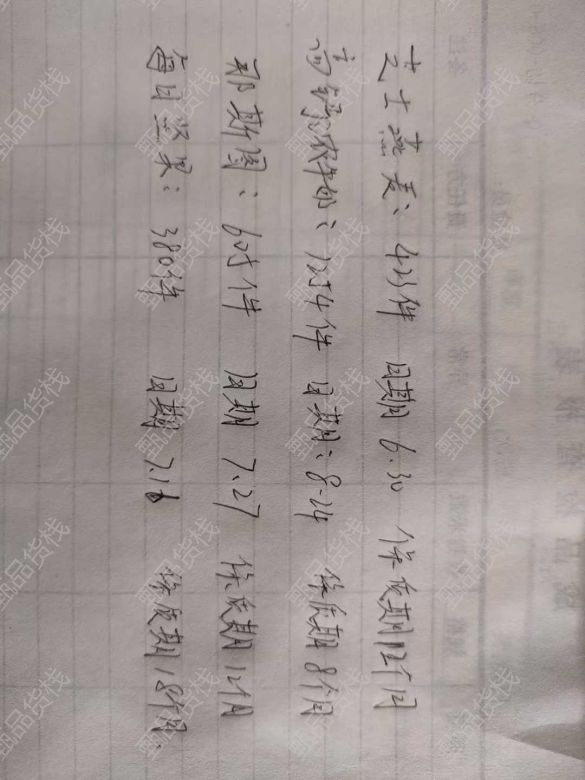 芝士燕麦：423件 日期 6.30 保质期12个月
高钙农牛奶：1254件 日期：8-24 保质期8个月
那斯图：605件 日期 7.27 保质期12个月
每日坚果：380件 日期 7.16 保质期18个月.
甄品货栈